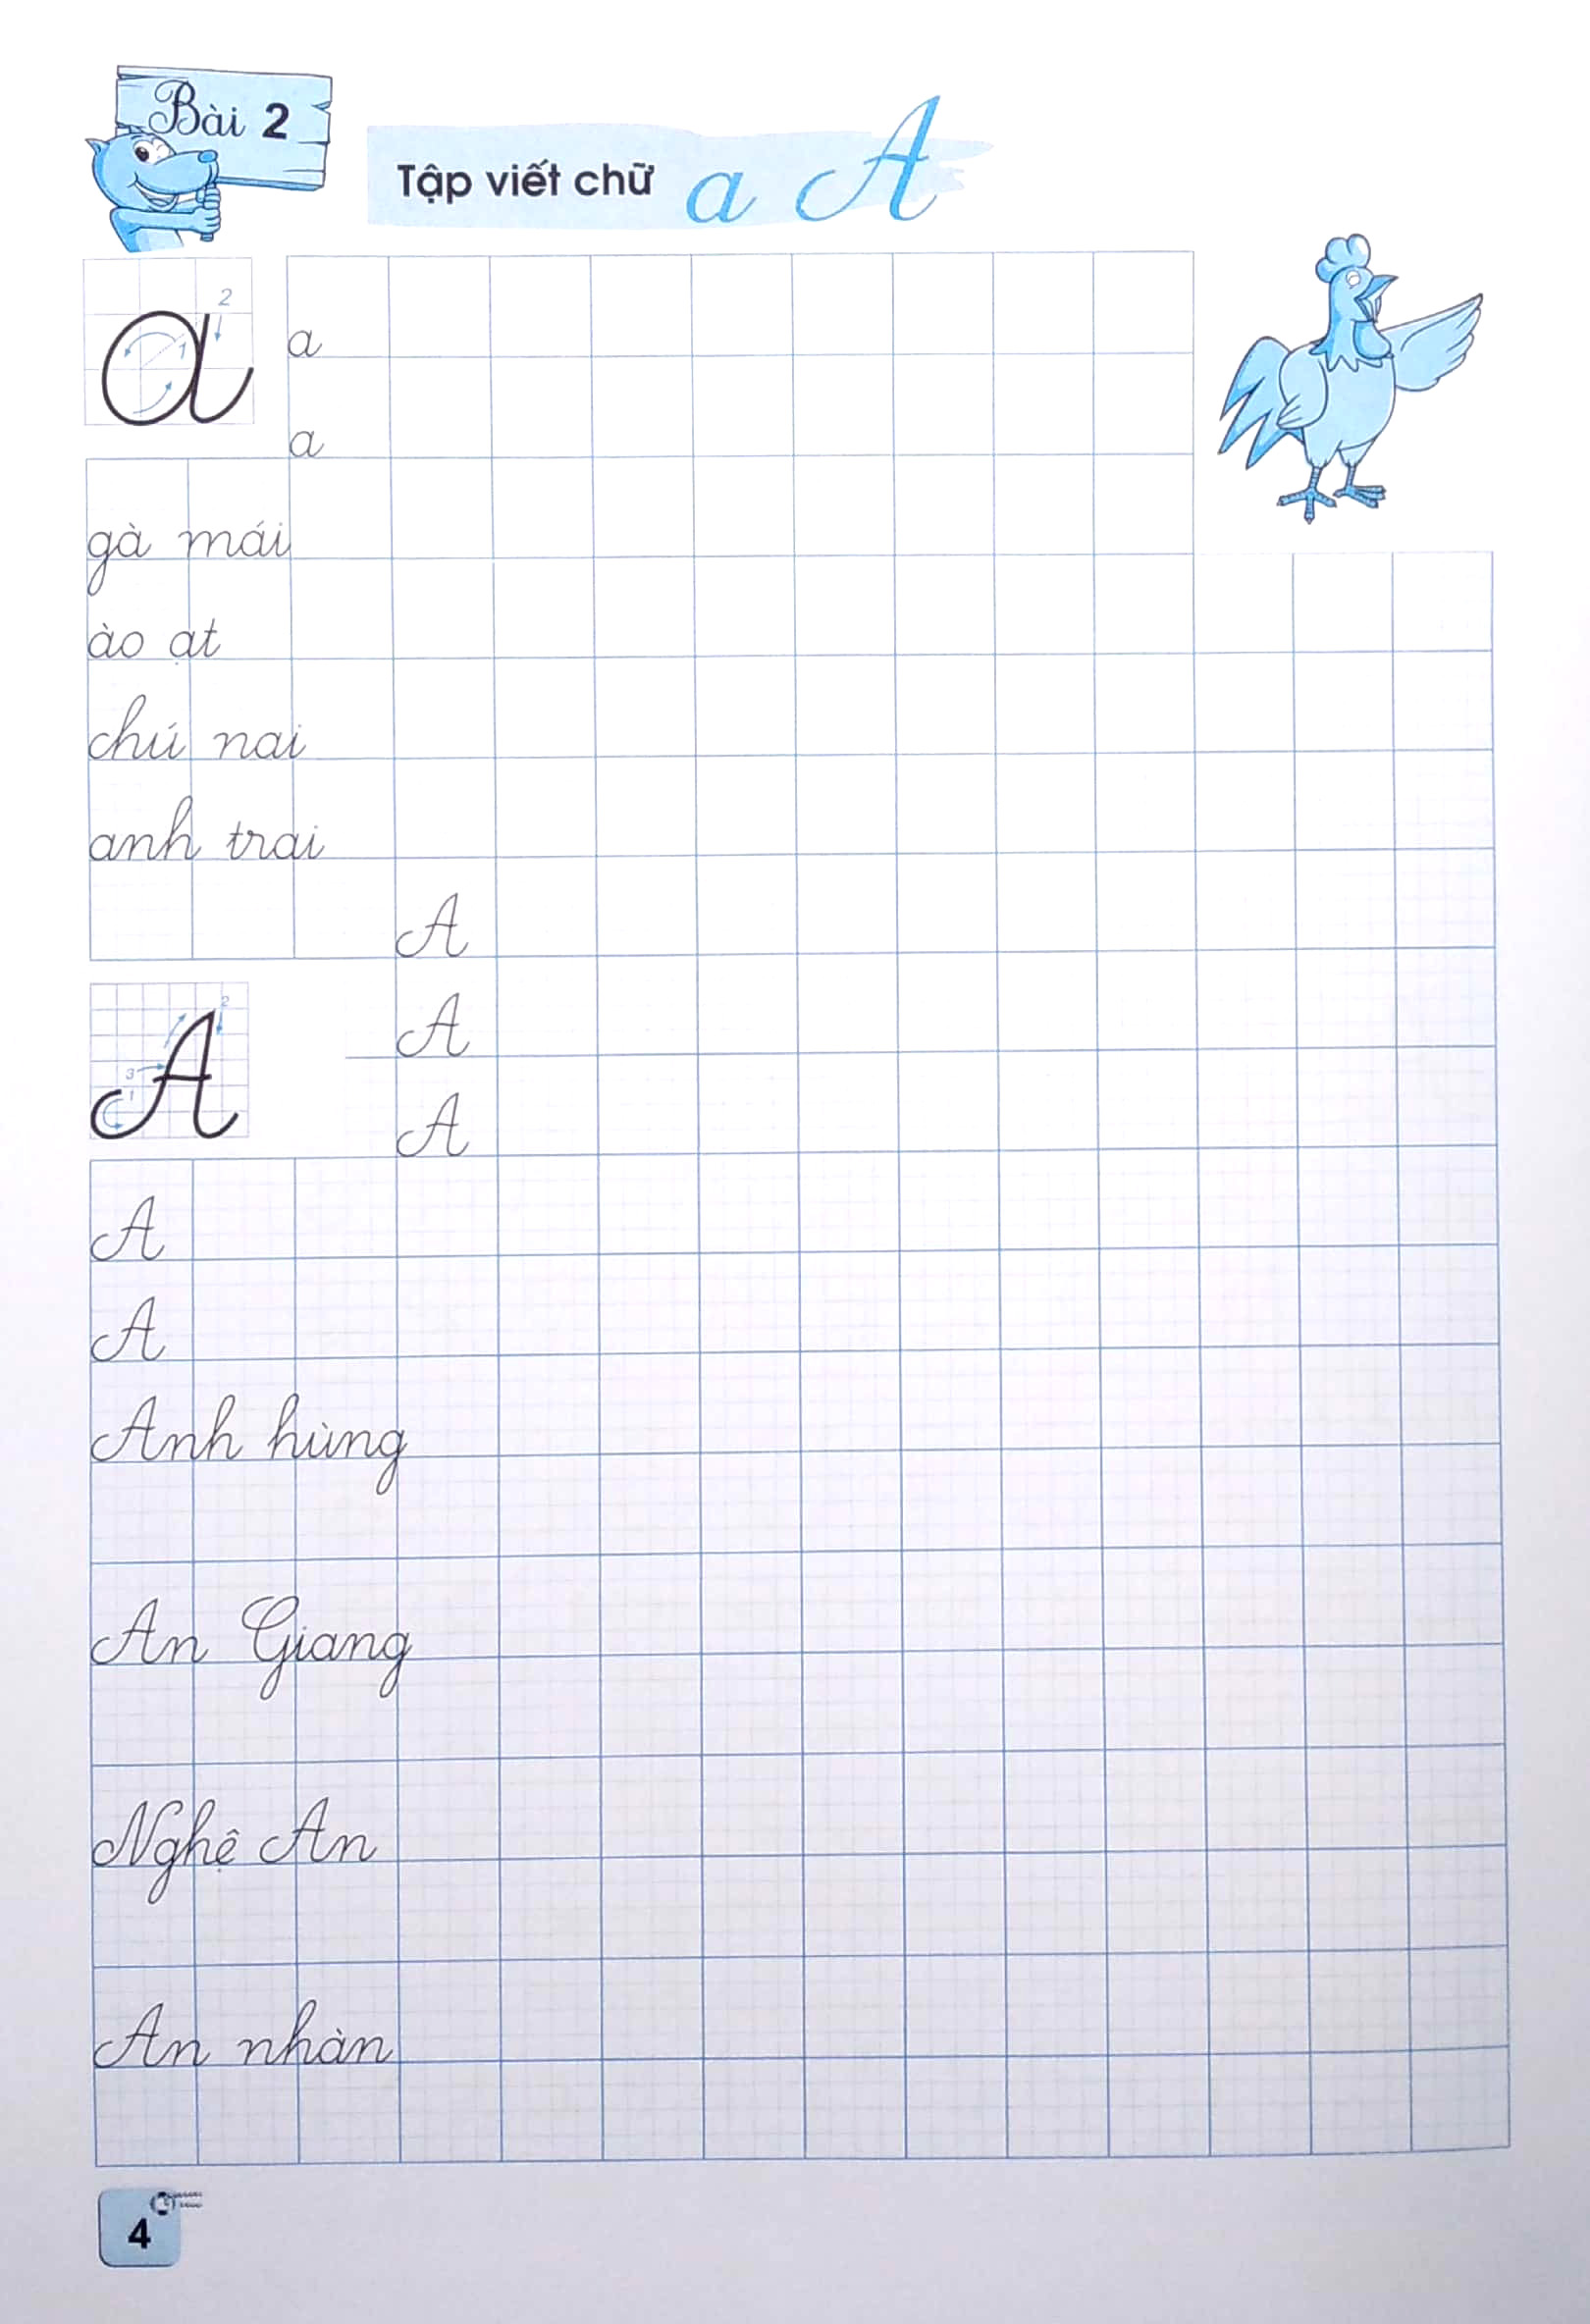 Bài 2
Tập viết chữ a A
2
1
a
a
a
gà mái
ào ạt
chú nai
anh trai
A
A
2
3
1
A
A
A
A
Anh hùng
An Giang
Nghệ An
An nhàn
4